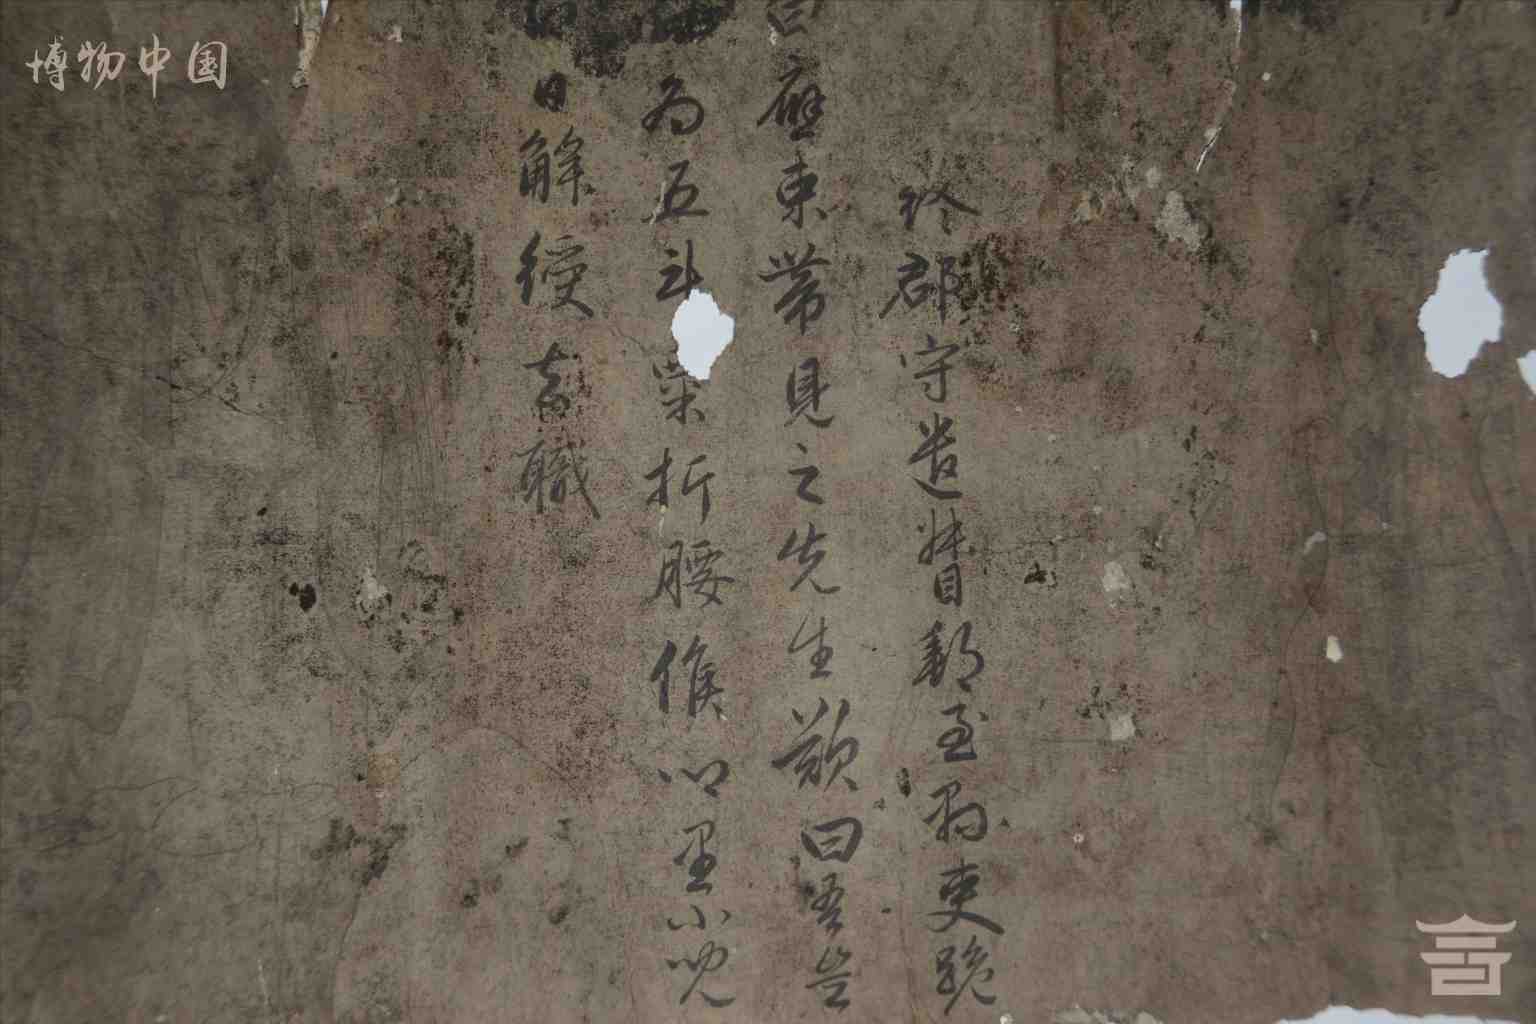 博物中国
終郡守遣督郵至縣吏跪
曰應束帶見之先生歎曰吾豈
為五斗粟折腰鄉里小兒
日解綬去職